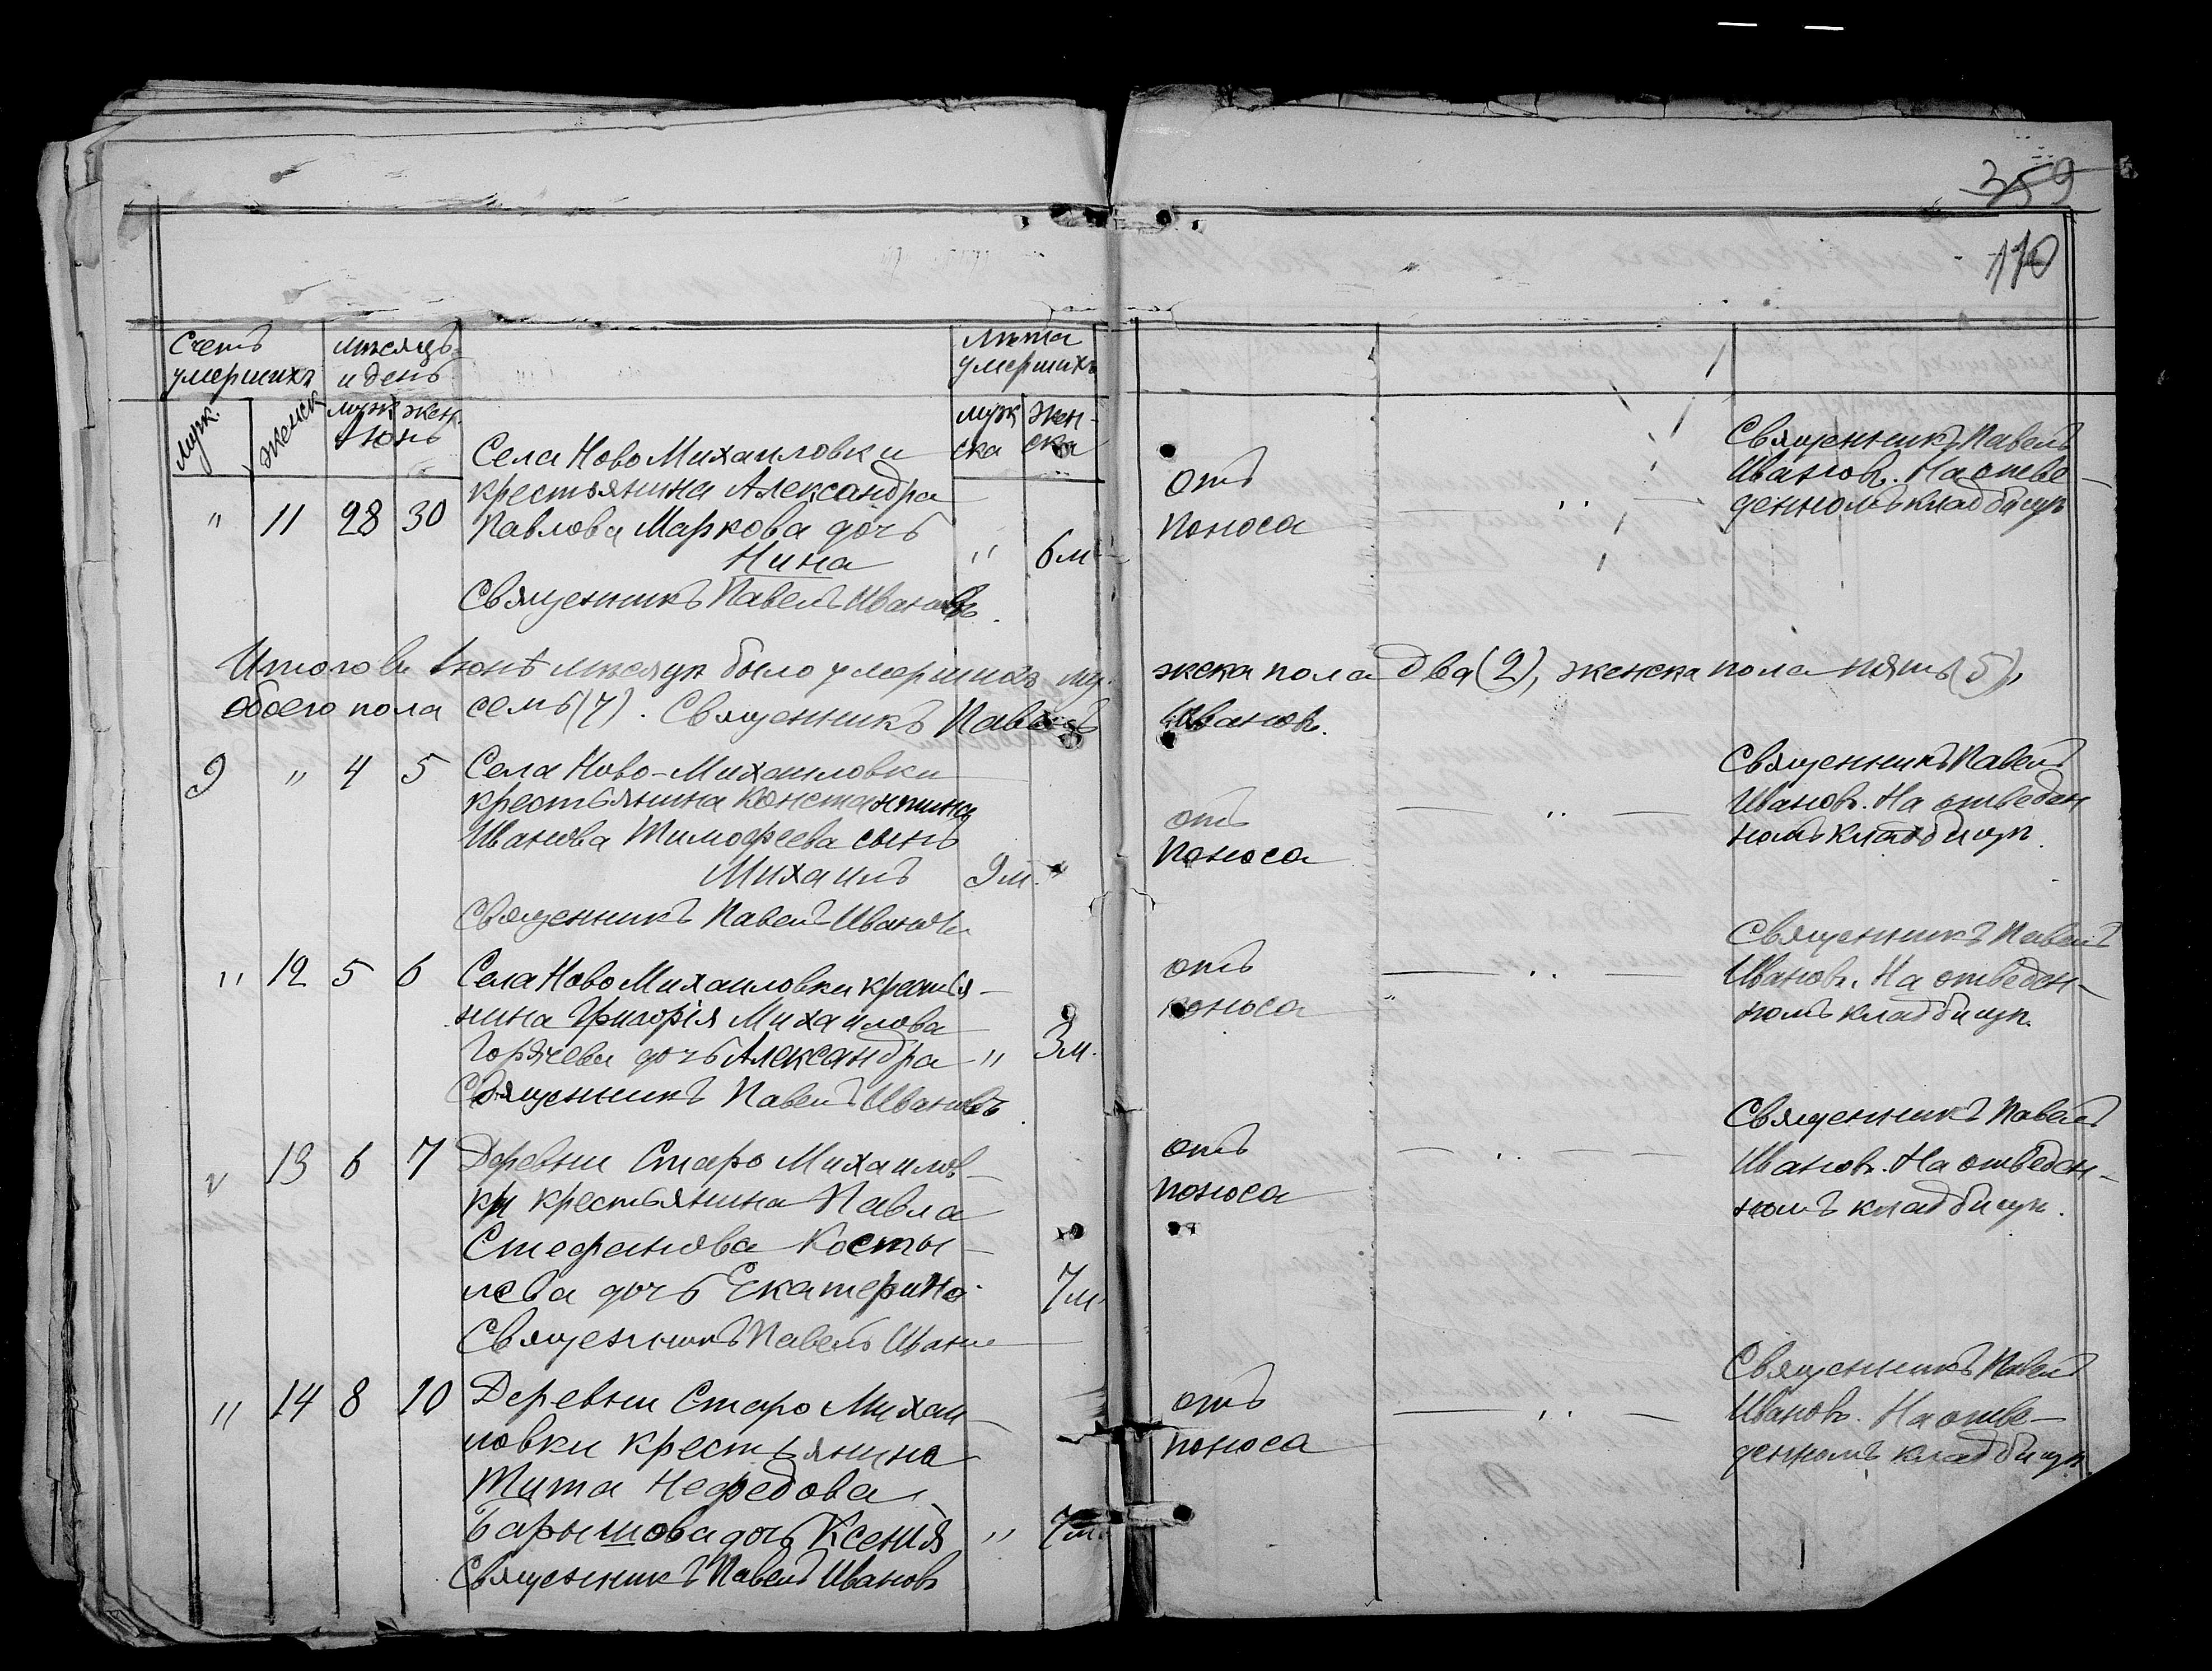 359
170
Счетъ
умершихъ
мѣсяцъ
и день
Лѣта
умершихъ
муж.
женск
муж жен.
Іюнь
муж
ска
жен-
ска
" 11 28 30
Села НовоМихаиловки
крестьянина Александра
Павлова Маркова дочь
Нина " 6 м
Священникъ Павелъ Ивановъ.
отъ
поноса
Священникъ Павелъ
Ивановъ. На отве-
денномъ кладбищѣ
Итого въ Іюнѣ мѣсяцѣ было умершихъ му-
жска пола два (2), женска пола пять (5),
обоего пола семь (7). Священникъ Павелъ
Ивановъ.
9 " 4 5
Села Ново-Михаиловки
крестьянина Константина
Иванова Тимофеева сынъ
Михаилъ 9 м. "
Священникъ Павелъ Ивановъ
отъ
поноса
Священникъ Павелъ
Ивановъ. На отведен
номъ кладбищѣ.
" 12 5 6
Села НовоМихаиловки крестья-
нина Григорія Михаилова
Горячева дочь Александра " 3 м.
Священникъ Павелъ Ивановъ.
отъ
поноса
Священникъ Павелъ
Ивановъ. На отведен-
номъ кладбищѣ.
" 13 6 7
Деревни Старо Михаилов-
ки крестьянина Павла
Стефанова Косты-
лева дочь Екатерина 7 м.
Священникъ Павелъ Иванов
отъ
поноса
Священникъ Павелъ
Ивановъ. На отведен-
номъ кладбищѣ.
" 14 8 10
Деревни Старо Михаи-
ловки крестьянина
Тита Нефедова
Барышова дочь Ксенія " 7 м.
Священникъ Павелъ Ивановъ
отъ
поноса
Священникъ Павелъ
Ивановъ. На отве-
денномъ кладбищѣ.